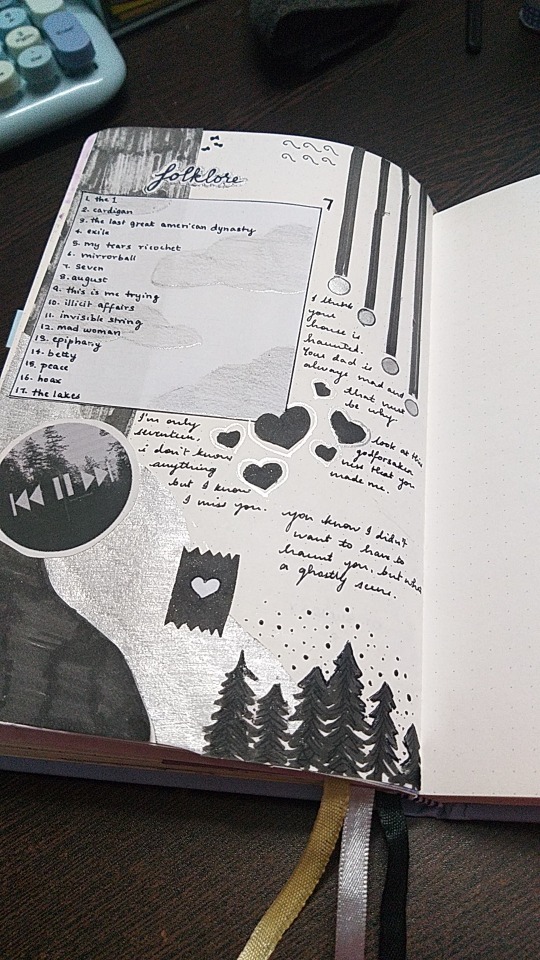 folklore
1. the 1
2. cardigan
3. the last great american dynasty
4. exile
5. my tears ricochet
6. mirrorball
7. seven
8. august
9. this is me trying
10. illicit affairs
11. invisible string
12. mad woman
13. epiphany
14. betty
15. peace
16. hoax
17. the lakes
I think
your
house is
haunted.
Your dad is
always mad and
that must
be why
I'm only
seventeen,
i don't know
anything
but I know
I miss you.
look at this
godforsaken
mess that you
made me.
you know I didn't
want to have to
haunt you. but what
a ghostly scene.